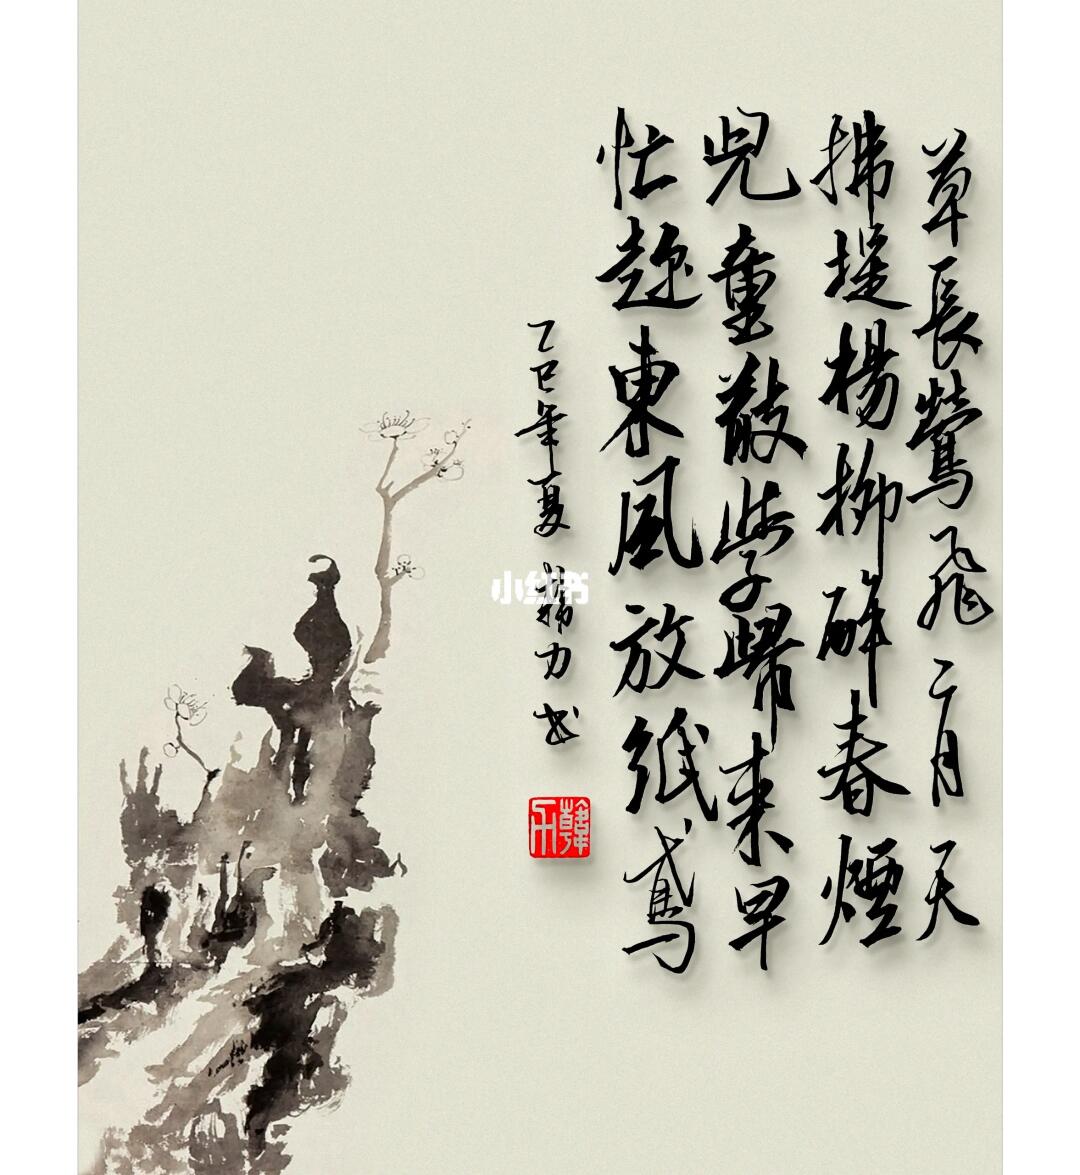 草長鶯飛二月天
拂堤楊柳醉春煙
兒童散學歸來早
忙趁東風放紙鳶
乙巳年夏 韓力书
小红书